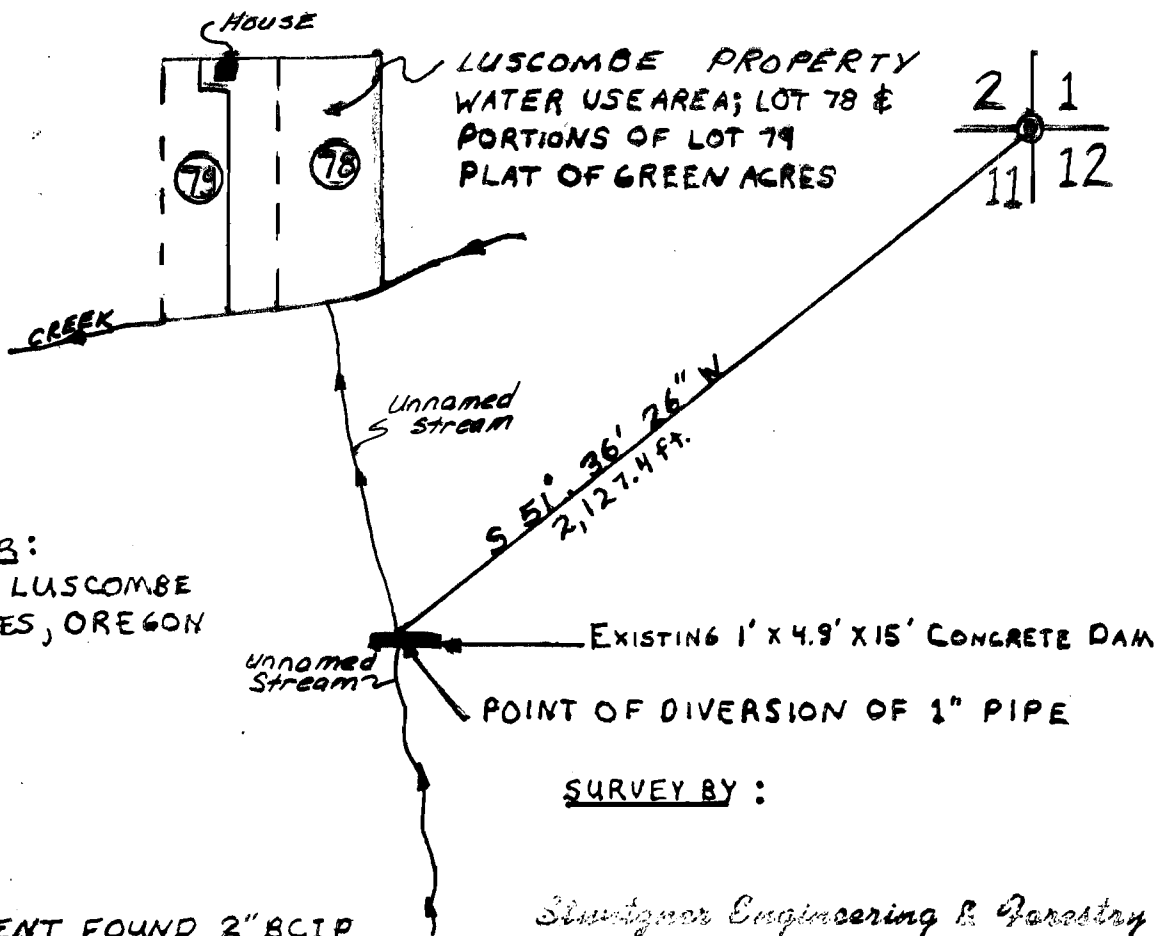 HOUSE
LUSCOMBE PROPERTY
WATER USE AREA; LOT 78 &
PORTIONS OF LOT 79
PLAT OF GREEN ACRES
2 1
11 12
79
78
CREEK
Unnamed
Stream
S 51° 36' 26" W
2,127.4 ft.
LUSCOMBE
ES, OREGON
EXISTING 1' X 4.9' X 15' CONCRETE DAM
Unnamed
Stream
POINT OF DIVERSION OF 1" PIPE
SURVEY BY :
ENT FOUND 2" BCIP
Stuntzner Engineering & Forestry